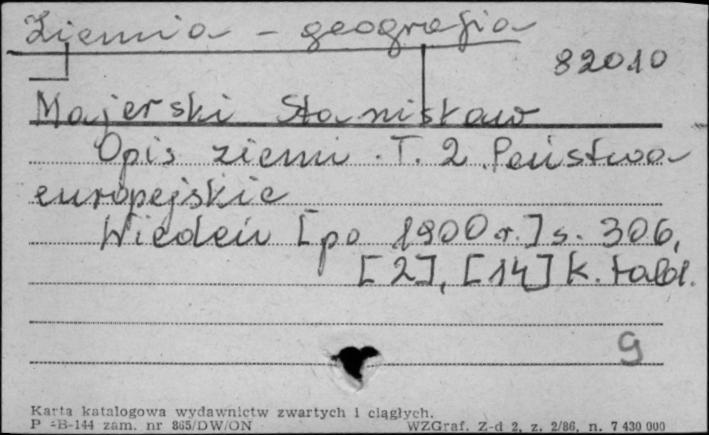 Ziemia - geografia
82010
Majerski Stanisław
Opis ziemi. T. 2. Państwa
europejskie
Wiedeń [po 1900 r.] s. 306,
[2], [14] k. tabl.
9
Karta katalogowa wydawnictw zwartych i ciągłych.
P -B-144 zam. nr 865/DW/ON WZGraf. Z-d 2, z. 2/86, n. 7 430 000